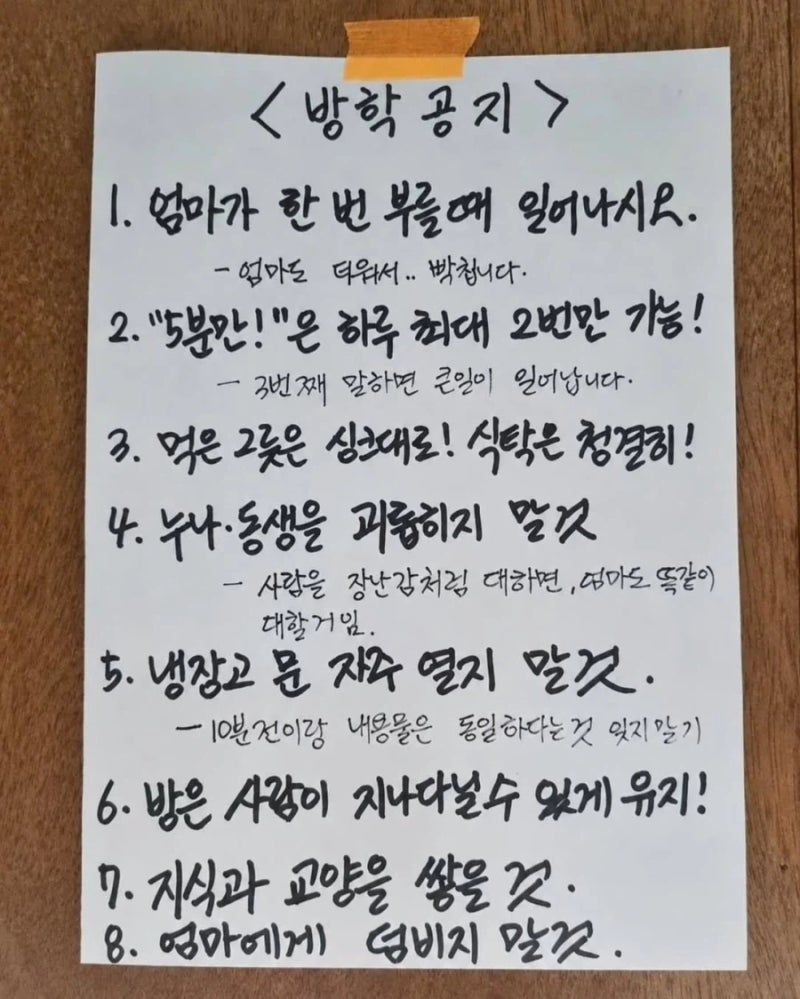 <방학 공지>
1. 엄마가 한 번 부를때 일어나시오.
- 엄마도 더워서.. 빡칩니다.
2. "5분만!"은 하루 최대 2번만 가능!
- 3번째 말하면 큰일이 일어납니다.
3. 먹은 그릇은 싱크대로! 식탁은 청결히!
4. 누나·동생을 괴롭히지 말것
- 사람을 장난감처럼 대하면, 엄마도 똑같이
대할거임.
5. 냉장고 문 자주 열지 말것.
- 10분전이랑 내용물은 동일하다는것 잊지말기
6. 방은 사람이 지나다닐수 있게 유지!
7. 지식과 교양을 쌓을 것.
8. 엄마에게 덤비지 말것.